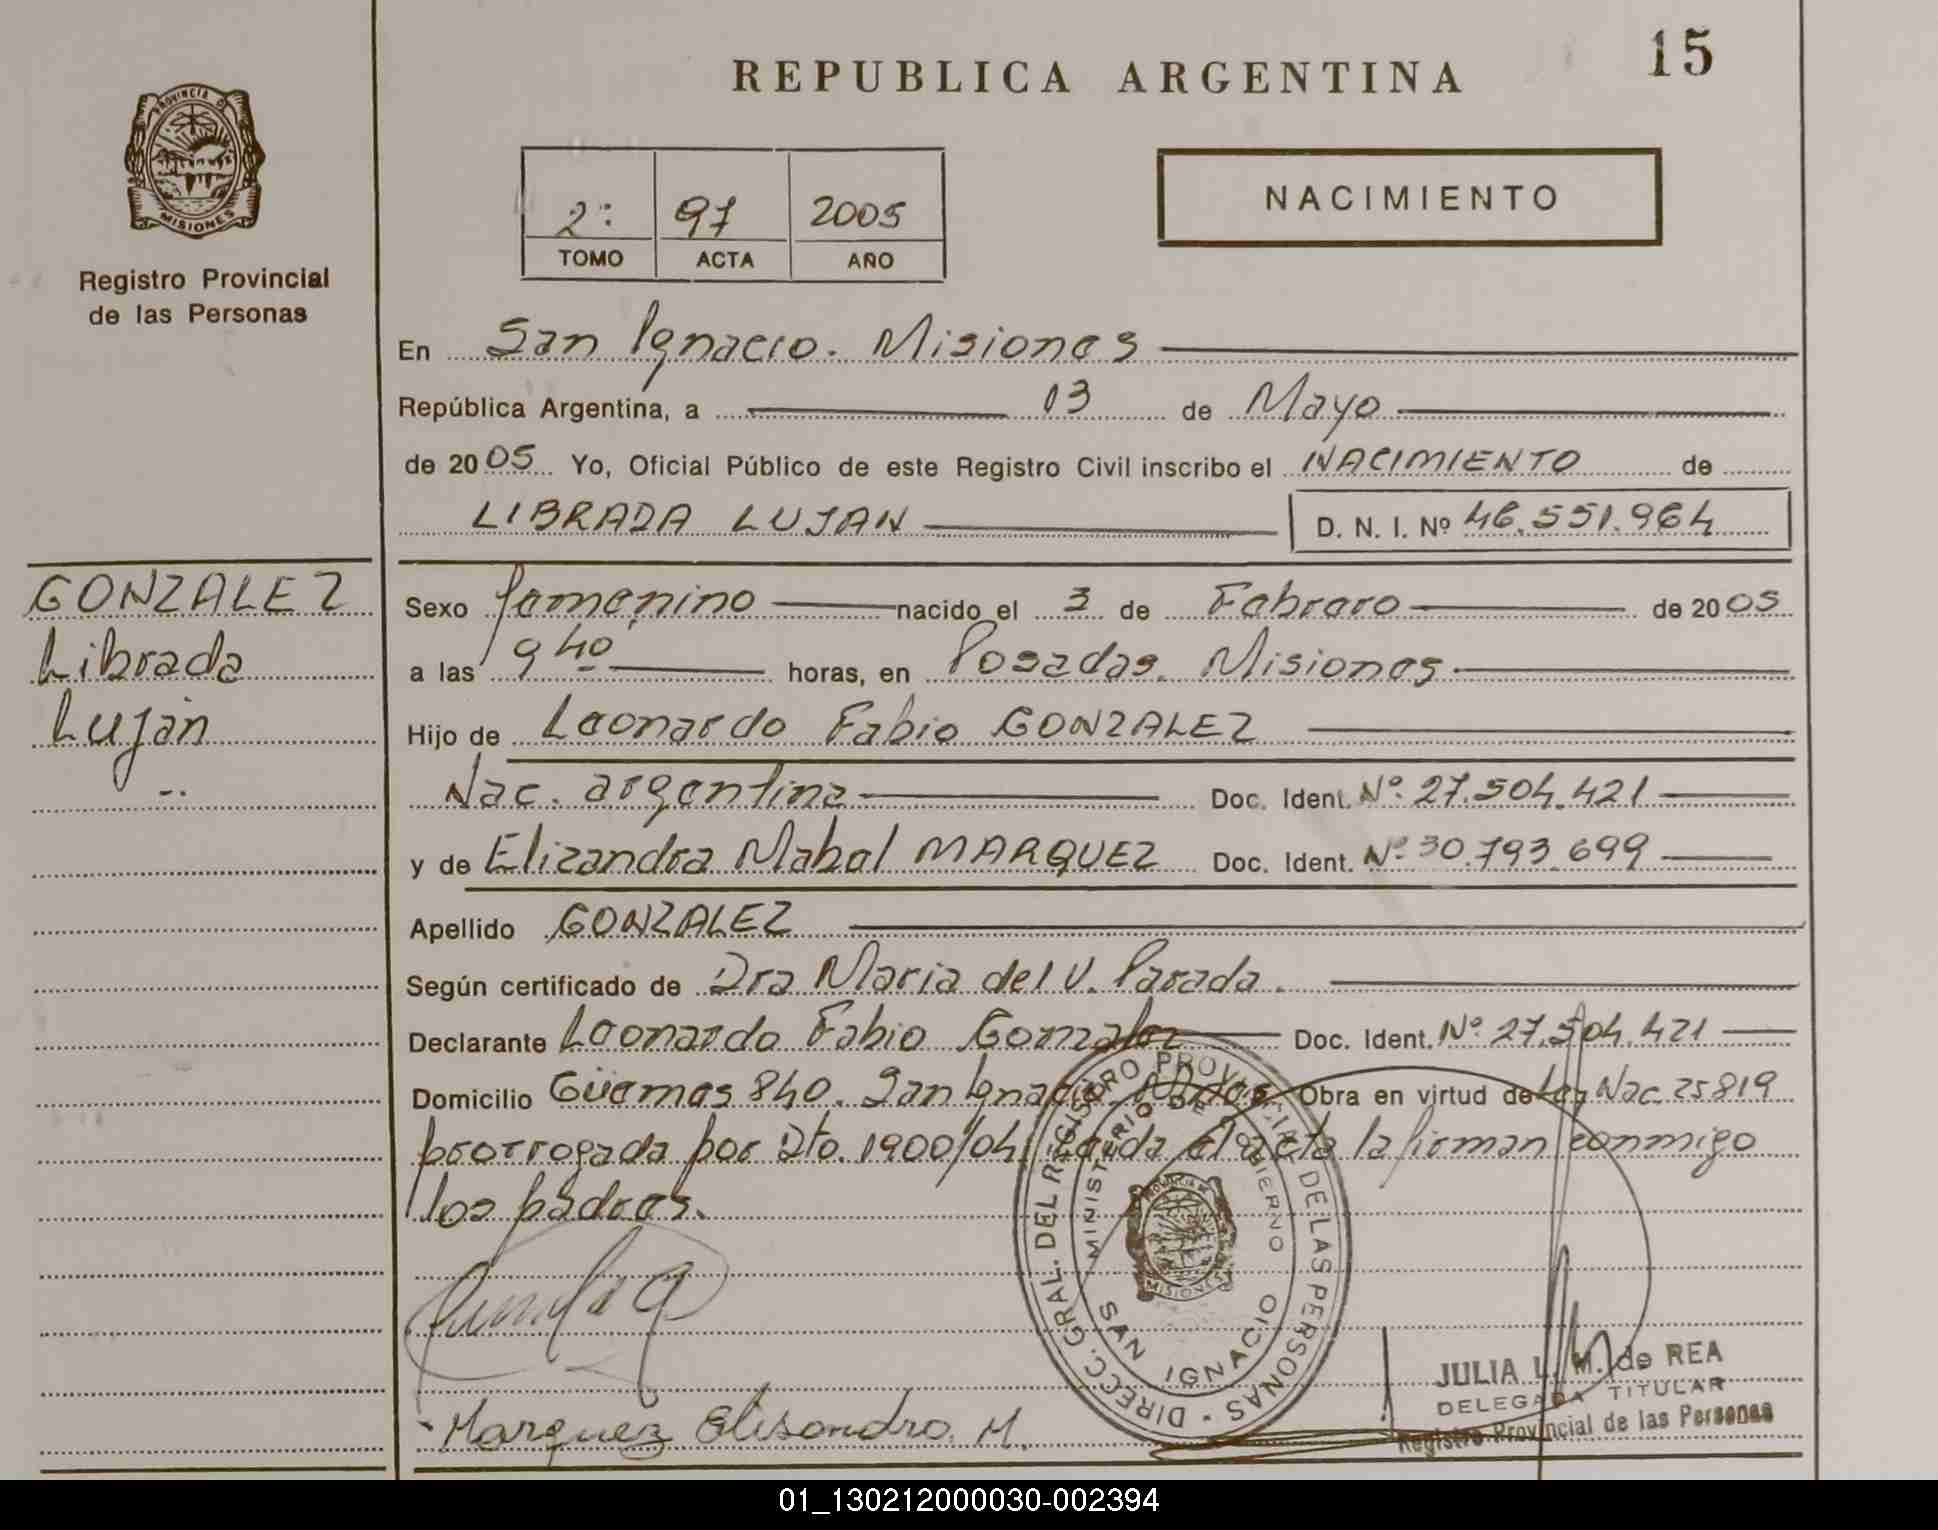 15
REPUBLICA ARGENTINA
PROVINCIA DE
MISIONES
Registro Provincial
de las Personas
2º: 97 2005
TOMO ACTA AÑO
NACIMIENTO
En San Ignacio. Misiones
República Argentina, a 03 de Mayo
de 2005 Yo, Oficial Público de este Registro Civil inscribo el NACIMIENTO de
LIBRADA LUJAN D. N. I. Nº 46.551.964
GONZALEZ
Librada
Luján
Sexo femenino nacido el 3 de Febrero de 2005
a las 9 40' horas, en Posadas. Misiones
Hijo de Leonardo Fabio GONZALEZ
Nac. argentina Doc. Ident. Nº 27.504.421
y de Elizandra Mabel MARQUEZ Doc. Ident. Nº 30.793.699
Apellido GONZALEZ
Según certificado de Dra Maria del V. Parada.
Declarante Leonardo Fabio Gonzalez Doc. Ident. Nº 27.504.421
Domicilio Güemes 840. San Ignacio. Mnes Obra en virtud de Ley Nac. 25819
prorrogada por Dto. 1900/04. Leída el acta la firman conmigo
los padres.
DIRECC. GRAL. DEL REGISTRO PROVINCIAL DE LAS PERSONAS
MINISTERIO DE GOBIERNO
MISIONES
SAN IGNACIO
Marquez Elisandra. M.
JULIA L. M. de REA
DELEGADA TITULAR
Registro Provincial de las Personas
01_130212000030-002394